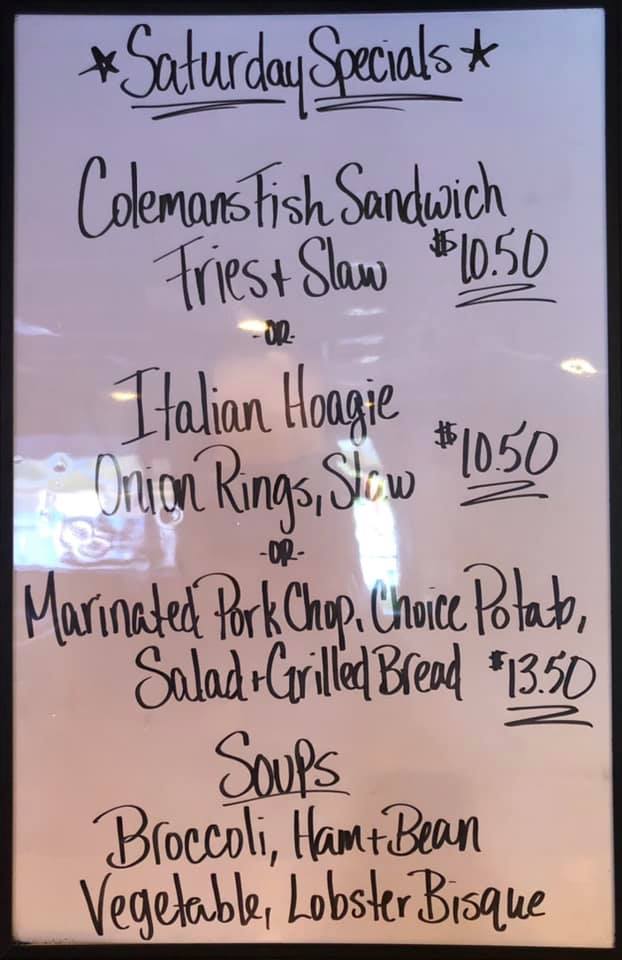 ★ Saturday Specials ★
Colemans Fish Sandwich
Fries + Slaw $10.50
-OR-
Italian Hoagie
Onion Rings, Slaw $10.50
-OR-
Marinated Pork Chop, Choice Potato,
Salad + Grilled Bread $13.50
Soups
Broccoli, Ham + Bean
Vegetable, Lobster Bisque